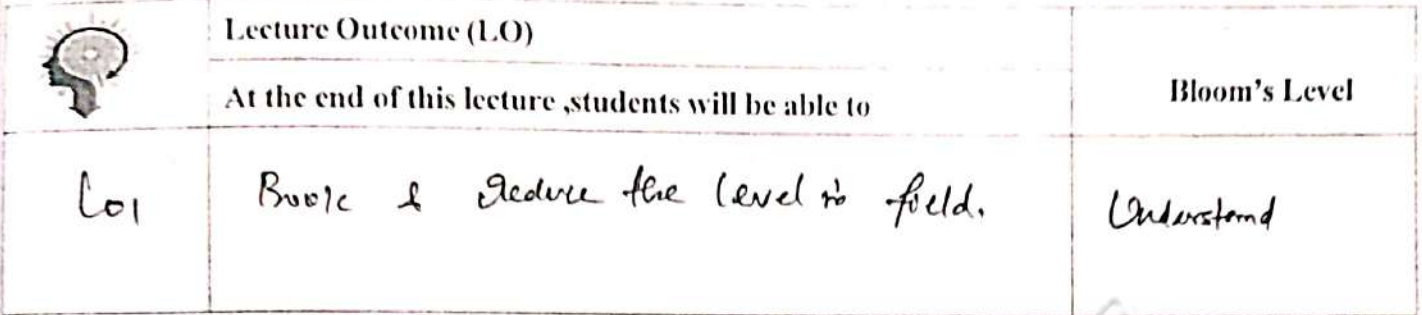 Lecture Outcome (LO)
At the end of this lecture ,students will be able to
Bloom's Level
LO1 Book & Reduce the level in field. Understand